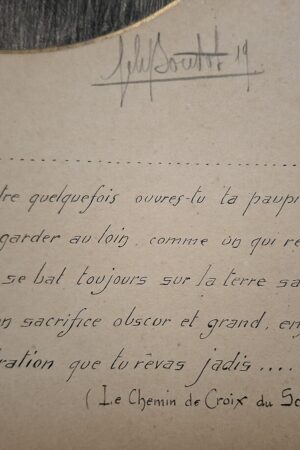 19
tre quelquefois ouvres-tu ta paupi
egarder au loin, comme un qui re
se bat toujours sur la terre sa
n sacrifice obscur et grand, en
ration que tu rêvas jadis....
( Le Chemin de Croix du So